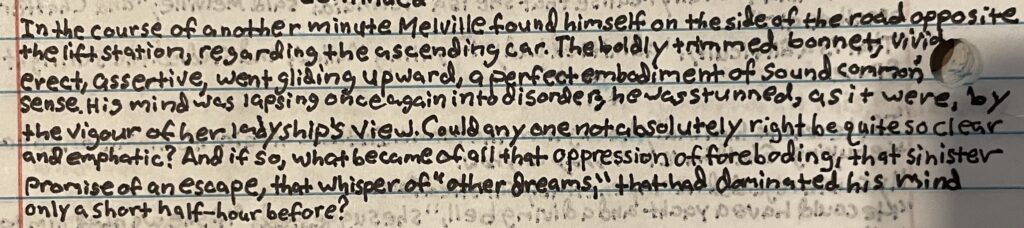 In the course of another minute Melville found himself on the side of the road opposite
the lift station, regarding the ascending car. The boldly trimmed bonnet, vivid,
erect, assertive, went gliding upward, a perfect embodiment of sound common
sense. His mind was lapsing once again into disorder; he was stunned, as it were, by
the vigour of her ladyship's view. Could any one not absolutely right be quite so clear
and emphatic? And if so, what became of all that oppression of foreboding, that sinister
promise of an escape, that whisper of "other dreams," that had dominated his mind
only a short half-hour before?